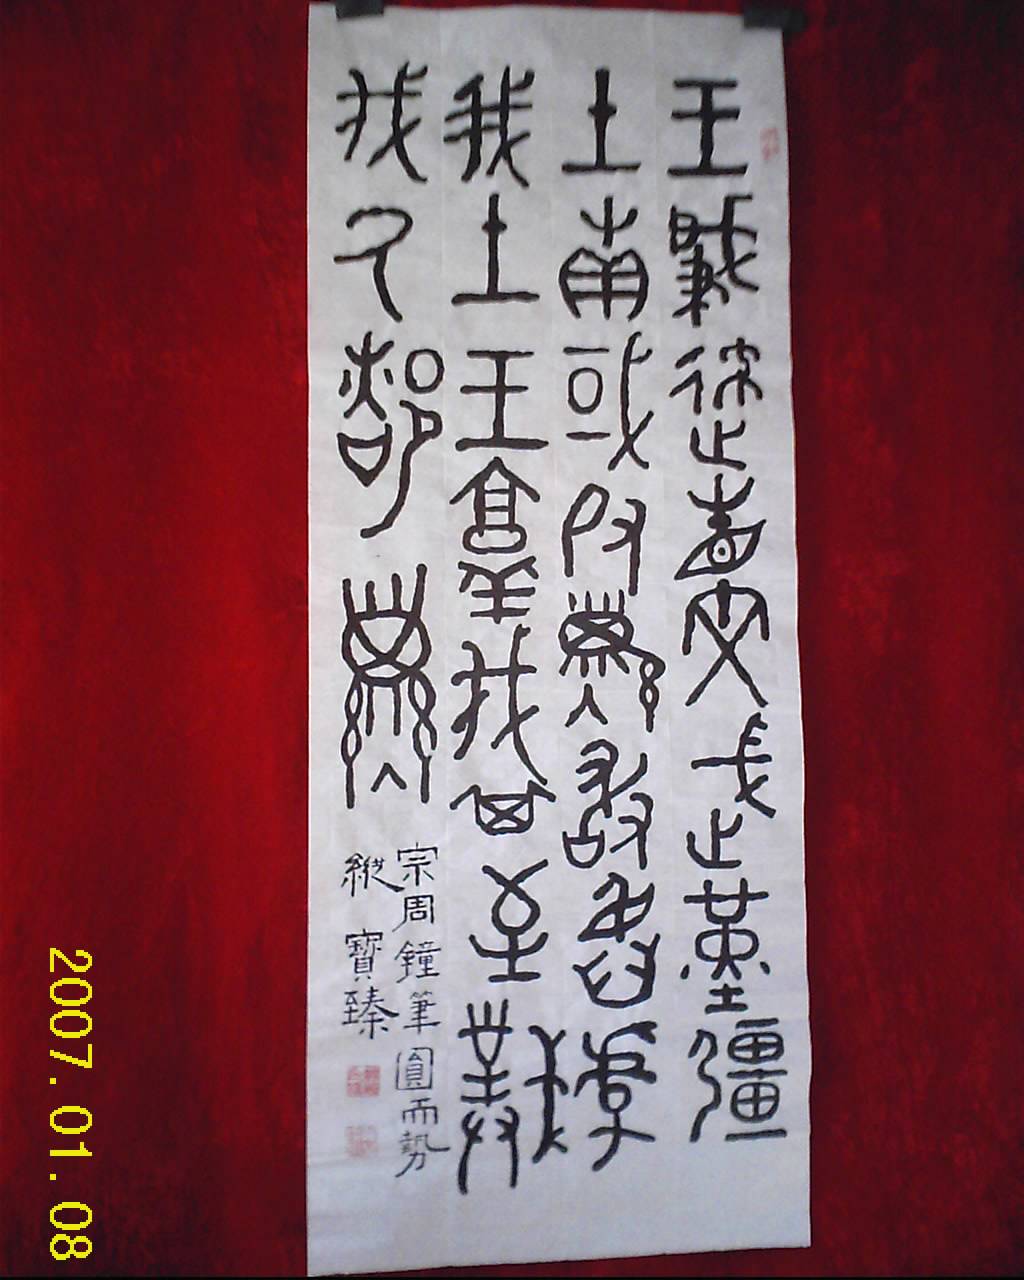 王肈遹省文武堇疆
土南或𠬝孳敢臽虐
我土王𦎫伐其至撲
伐氒都𠬝孳
宗周鐘筆圓而勢
縱 寶臻
2007.01.08